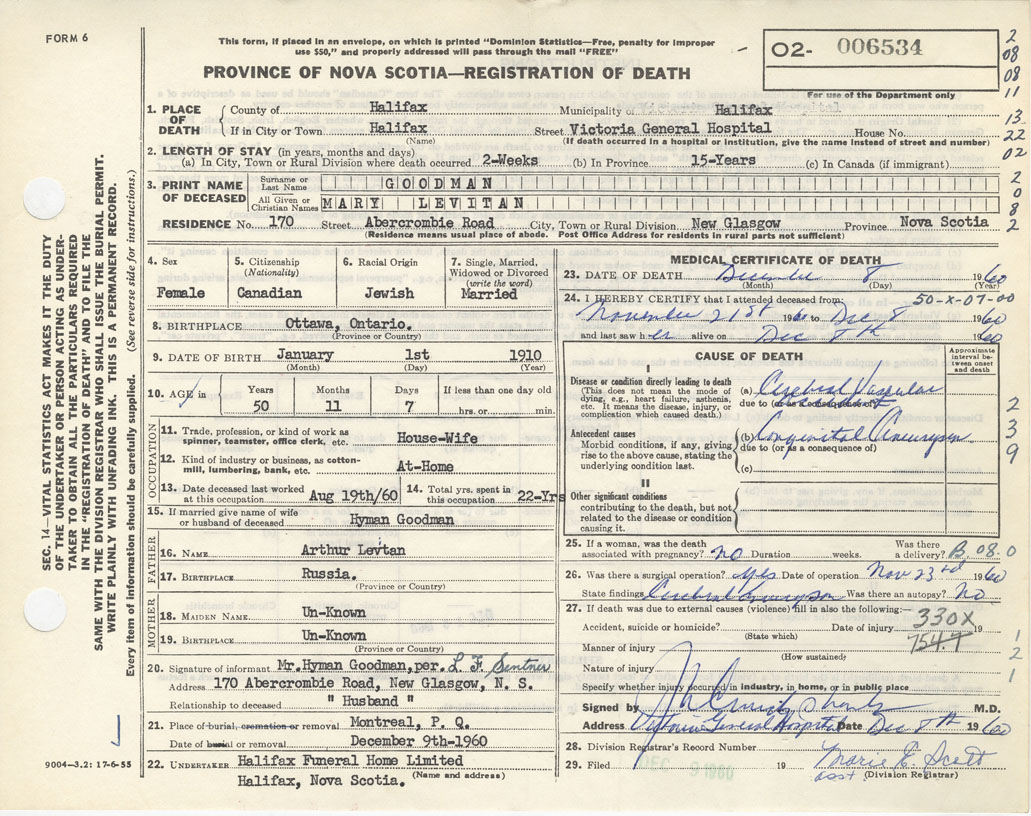 FORM 6
This form, if placed in an envelope, on which is printed "Dominion Statistics—Free, penalty for improper
use $50," and properly addressed will pass through the mail "FREE"
02- 006534
For use of the Department only
PROVINCE OF NOVA SCOTIA—REGISTRATION OF DEATH
1. PLACE OF DEATH
County of Halifax Municipality of Halifax
If in City or Town Halifax Street Victoria General Hospital House No.
(Name) (If death occurred in a hospital or institution, give the name instead of street and number)
2. LENGTH OF STAY (in years, months and days)
(a) In City, Town or Rural Division where death occurred 2-Weeks (b) In Province 15-Years (c) In Canada (if immigrant)
3. PRINT NAME OF DECEASED
Surname or Last Name GOODMAN
All Given or Christian Names MARY LEVITAN
RESIDENCE No. 170 Street Abercrombie Road City, Town or Rural Division New Glasgow Province Nova Scotia
(Residence means usual place of abode. Post Office Address for residents in rural parts not sufficient)
4. Sex
Female
5. Citizenship
(Nationality)
Canadian
6. Racial Origin
Jewish
7. Single, Married,
Widowed or Divorced
(write the word)
Married
8. BIRTHPLACE Ottawa, Ontario.
(Province or Country)
9. DATE OF BIRTH January 1st 1910
(Month) (Day) (Year)
10. AGE in
Years Months Days If less than one day old
50 11 7 hrs. or min.
OCCUPATION
11. Trade, profession, or kind of work as
spinner, teamster, office clerk, etc. House-Wife
12. Kind of industry or business, as cotton-
mill, lumbering, bank, etc. At-Home
13. Date deceased last worked
at this occupation Aug 19th/60
14. Total yrs. spent in
this occupation 22-Yrs
15. If married give name of wife
or husband of deceased Hyman Goodman
FATHER
16. NAME Arthur Levtan
17. BIRTHPLACE Russia.
(Province or Country)
MOTHER
18. MAIDEN NAME Un-Known
19. BIRTHPLACE Un-Known
(Province or Country)
20. Signature of informant Mr. Hyman Goodman, per. L. F. Sentner
Address 170 Abercrombie Road, New Glasgow, N. S.
Relationship to deceased " Husband "
21. Place of burial, cremation or removal Montreal, P. Q.
Date of burial or removal December 9th-1960
22. UNDERTAKER Halifax Funeral Home Limited
Halifax, Nova Scotia. (Name and address)
MEDICAL CERTIFICATE OF DEATH
23. DATE OF DEATH December 8 1960
(Month) (Day) (Year)
24. I HEREBY CERTIFY that I attended deceased from: 50-X-07-00
November 21st 1960 to Dec 8 1960
and last saw her alive on Dec 8th 1960
CAUSE OF DEATH
Approximate
interval be-
tween onset
and death
I
Disease or condition directly leading to death
(This does not mean the mode of
dying, e.g., heart failure, asthenia,
etc. It means the disease, injury, or
complication which caused death.)
(a) Cerebral Vascular
due to (or as a consequence of)
Antecedent causes
Morbid conditions, if any, giving
rise to the above cause, stating the
underlying condition last.
(b) Congenital Aneurysm
due to (or as a consequence of)
(c)
II
Other significant conditions
contributing to the death, but not
related to the disease or condition
causing it.
25. If a woman, was the death
associated with pregnancy? no Duration weeks. Was there
a delivery? B. 08. 0
26. Was there a surgical operation? yes Date of operation Nov 23rd 1960
State findings Cerebral Aneurysm Was there an autopsy? No
27. If death was due to external causes (violence) fill in also the following:—
Accident, suicide or homicide? Date of injury 19
330X
(State which)
754.1
Manner of injury
(How sustained)
Nature of injury
Specify whether injury occurred in industry, in home, or in public place
Signed by M.D.
Address Victoria General Hospital Date Dec 8th 1960
28. Division Registrar's Record Number
29. Filed DEC 9 1960 19 Marie E. Scott
asst (Division Registrar)
2
08
08
11
13
22
02
2
0
8
2
2
3
9
1
2
1
SEC. 14—VITAL STATISTICS ACT MAKES IT THE DUTY
OF THE UNDERTAKER OR PERSON ACTING AS UNDER-
TAKER TO OBTAIN ALL THE PARTICULARS REQUIRED
IN THE "REGISTRATION OF DEATH" AND TO FILE THE
SAME WITH THE DIVISION REGISTRAR WHO SHALL ISSUE THE BURIAL PERMIT.
WRITE PLAINLY WITH UNFADING INK. THIS IS A PERMANENT RECORD.
Every item of information should be carefully supplied. (See reverse side for instructions.)
9004—3.2: 17-6-55